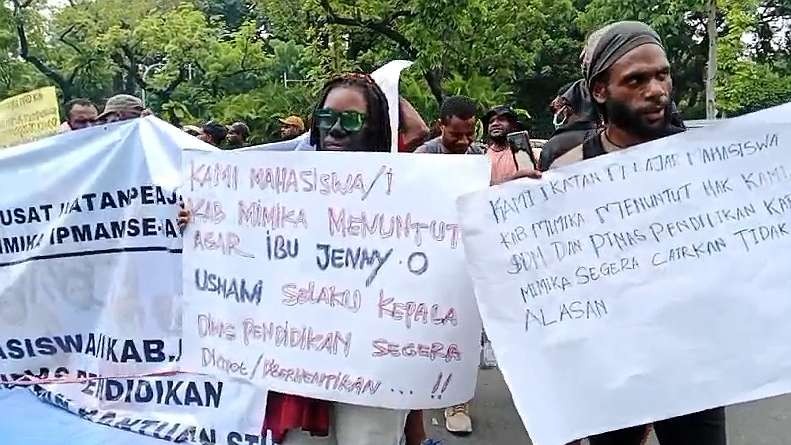 USAT
MIMIKA IPMANSE-
ASISWA/I KAB.
PENDIDIKAN
KAMI MAHASISWA/I
KAB MIMIKA MENUNTUT
AGAR IBU JENNY.O
USMANI SELAKU KEPALA
DINAS PENDIDIKAN SEGERA
DICOPOT/DIBERHENTIKAN...!!
KAMI IKATAN PELAJAR MAHASISWA
KAB MIMIKA MENUNTUT HAK KAMI
SDM DAN DINAS PENDIDIKAN KAB
MIMIKA SEGERA CAIRKAN TIDAK
ALASAN